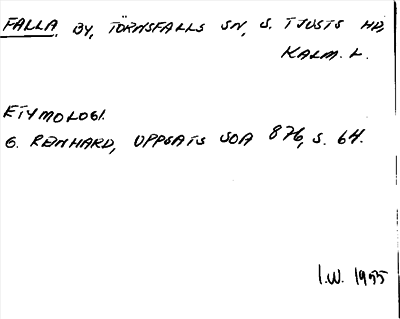 FALLA, BY, TÖRNSFALLS SN, S. TJUSTS HD,
KALM. L.
ETYMOLOGI.
G. RENHARD, UPPSATS SOA 876, S. 64.
I.W. 1955